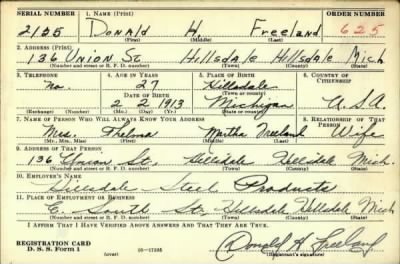 SERIAL NUMBER 1. NAME (Print) ORDER NUMBER
2155 Donald H. Freeland 625
(First) (Middle) (Last)
2. ADDRESS (Print)
136 Union St Hillsdale Hillsdale Mich
(Number and street or R. F. D. number) (Town) (County) (State)
3. TELEPHONE 4. AGE IN YEARS 5. PLACE OF BIRTH 6. COUNTRY OF CITIZENSHIP
no. 27 Hillsdale
DATE OF BIRTH (Town or county)
2 2 1913 Michigan U.S.A.
(Exchange) (Number) (Mo.) (Day) (Yr.) (State or country)
7. NAME OF PERSON WHO WILL ALWAYS KNOW YOUR ADDRESS 8. RELATIONSHIP OF THAT PERSON
Mrs. Thelma Martha Freeland Wife
(Mr., Mrs., Miss) (First) (Middle) (Last)
9. ADDRESS OF THAT PERSON
136 Union St. Hillsdale Hillsdale Mich.
(Number and street or R. F. D. number) (Town) (County) (State)
10. EMPLOYER'S NAME
Hillsdale Steel Products
11. PLACE OF EMPLOYMENT OR BUSINESS
E. South St. Hillsdale Hillsdale Mich
(Number and street or R. F. D. number) (Town) (County) (State)
I AFFIRM THAT I HAVE VERIFIED ABOVE ANSWERS AND THAT THEY ARE TRUE.
REGISTRATION CARD
D. S. S. Form 1 (over) 16-17105 Donald H Freeland
(Registrant's signature)